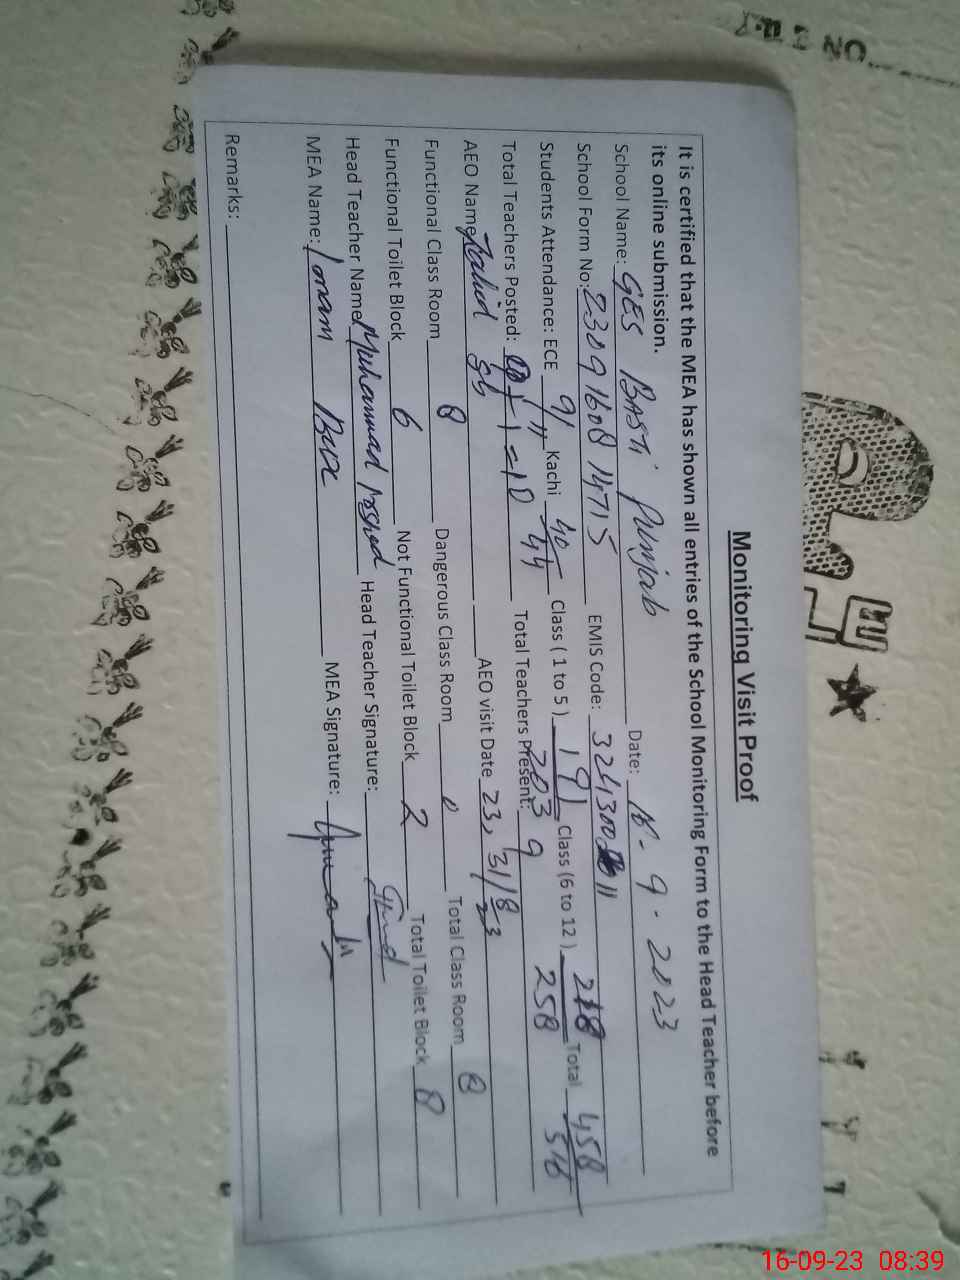 Monitoring Visit Proof
It is certified that the MEA has shown all entries of the School Monitoring Form to the Head Teacher before
its online submission.
School Name: GES BASTI Punjab Date: 16-9-2023
School Form No: 2309160814715 EMIS Code: 324300 11
Students Attendance: ECE 9/11 Kachi 40/44 Class ( 1 to 5 ) 191/203 Class (6 to 12 ) 218/258 Total 458/516
Total Teachers Posted: +1=10 Total Teachers Present: 9
AEO Name Zahid AEO visit Date 23, 31/8/23
Functional Class Room 8 Dangerous Class Room 0 Total Class Room 8
Functional Toilet Block 6 Not Functional Toilet Block 2 Total Toilet Block 8
Head Teacher Name Muhammad Head Teacher Signature:
MEA Name: Imam Bux MEA Signature:
Remarks:
16-09-23 08:39